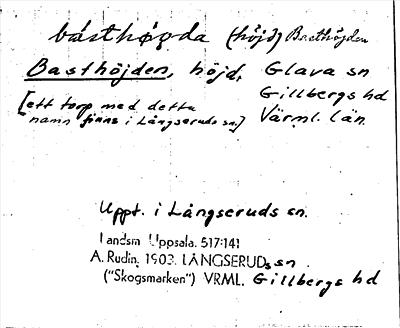 båsthǫgda (höjd) Basthöjden
Basthöjden, höjd, Glava sn
Gillbergs hd
[ett torp med detta Värml. län
namn finns i Långseruds sn.]
Uppt. i Långseruds sn.
Landsm. Uppsala. 517:141
A. Rudin. 1903. LÅNGSERUDs sn
("Skogsmarken") VRML. Gillbergs hd